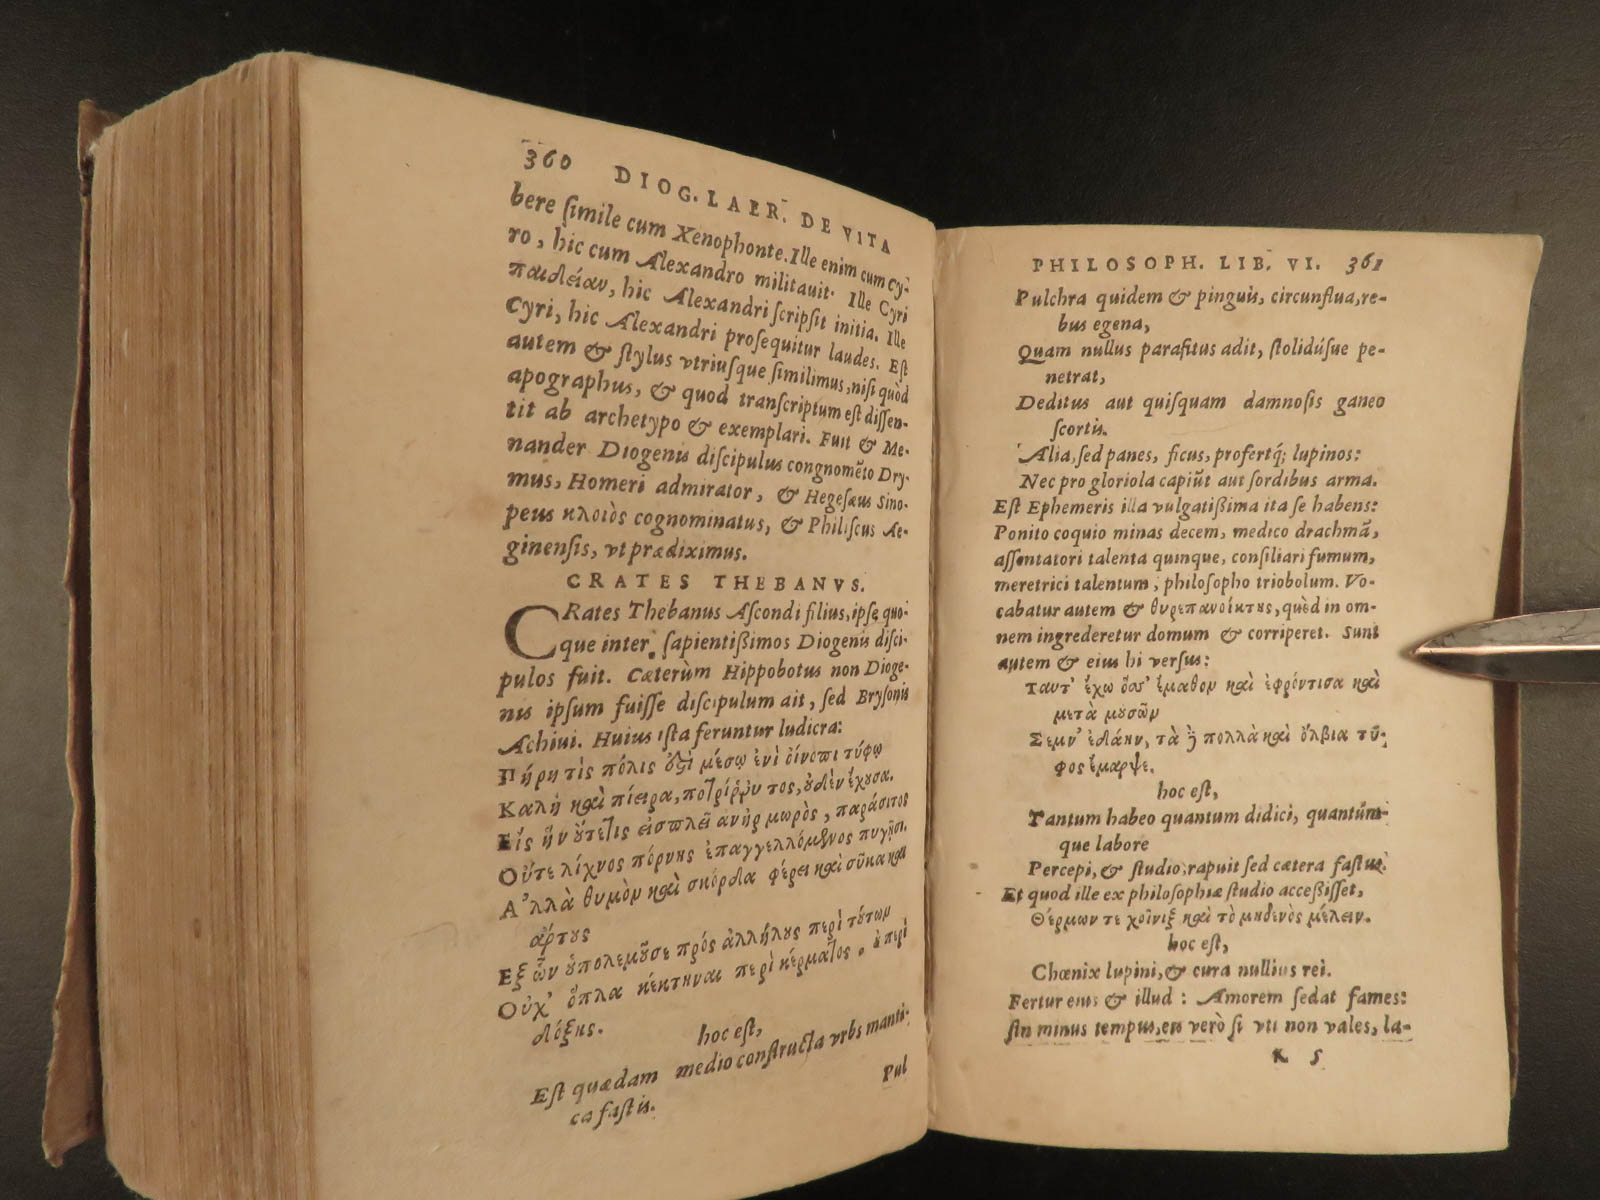 360 DIOG. LAER. DE VITA
bere simile cum Xenophonte. Ille enim cum Cy-
ro, hic cum Alexandro militauit. Ille Cyri
παιδείαν, hic Alexandri scripsit initia. Ille
Cyri, hic Alexandri prosequitur laudes. Est
autem & stylus vtriusque simillimus, nisi quòd
apographus, & quod transcriptum est dissen-
tit ab archetypo & exemplari. Fuit & Me-
nander Diogenis discipulus congnomẽto Dry-
mus, Homeri admirator, & Hegesæus Sino-
peus κλοιὸς cognominatus, & Philiscus Ae-
ginensis, vt prædiximus.
CRATES THEBANVS.
CRates Thebanus Ascondi filius, ipse quo-
que inter sapientißimos Diogenis disci-
pulos fuit. Cæterùm Hippobotus non Dioge-
nis ipsum fuisse discipulum ait, sed Brysonis
Achiui. Huius ista feruntur ludicra:
Πήρη τὶς πόλις ἐστὶ μέσῳ ἐνὶ οἴνοπι τύφῳ
Καλὴ καὶ πίειρα, περίρρυτος, οὐδὲν ἔχουσα.
Εἰς ἣν οὔτε τις εἰσπλεῖ ἀνὴρ μωρὸς, παράσιτος
Οὔτε λίχνος πόρνης ἐπαγγελλόμενος πυγῇσι.
Ἀλλὰ θυμὸν καὶ σκόρδα φέρει καὶ σῦκα καὶ
ἄρτους
Ἐξ ὧν οὐ πολεμοῦσι πρὸς ἀλλήλους περὶ τούτων
Οὐχ' ὅπλα κέκτηναι περὶ κέρματος, οὐ περὶ
δόξης.
hoc est,
Est quædam medio constructa vrbs manti-
ca fastis.
Pul
PHILOSOPH. LIB. VI. 361
Pulchra quidem & pinguis, circunflua, re-
bus egena,
Quam nullus parasitus adit, stolidúsue pe-
netrat,
Deditus aut quisquam damnosis ganeo
scortis.
Alia, sed panes, ficus, profertq́; lupinos:
Nec pro gloriola capiũt aut sordibus arma.
Est Ephemeris illa vulgatißima ita se habens:
Ponito coquio minas decem, medico drachmã,
assentatori talenta quinque, consiliari fumum,
meretrici talentum, philosopho triobolum. Vo-
cabatur autem & θυρεπανοίκτης, quòd in om-
nem ingrederetur domum & corriperet. Sunt
autem & eius hi versus:
Ταῦτ' ἔχω ὅσσ' ἔμαθον καὶ ἐφρόντισα καὶ
μετὰ μουσῶν
Σεμν' ἐδάην, τὰ δὲ πολλὰ καὶ ὄλβια τῦ-
φος ἔμαρψε.
hoc est,
Tantum habeo quantum didici, quantúm-
que labore
Percepi, & studio, rapuit sed cætera fastus.
Et quod ille ex philosophiæ studio acceßisset,
Θέρμων τε χοῖνιξ καὶ τὸ μηδενὸς μέλειν.
hoc est,
Chœnix lupini, & cura nullius rei.
Fertur eius & illud: Amorem sedat fames:
sin minus tempus, eis verò si vti non vales, la-
K 5